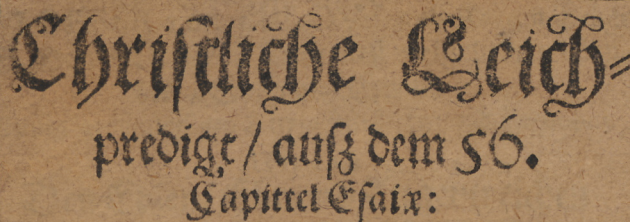 Chriſtliche Leich⸗
predigt / auſz dem 56.
Capittel Eſaiæ: